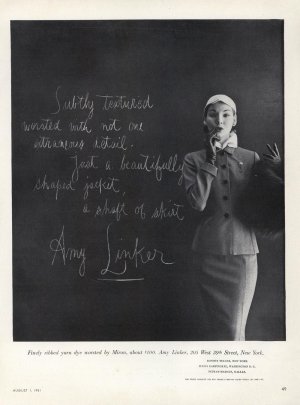 Subtly textured
worsted with not one
extraneous detail.
Just a beautifully
shaped jacket,
a shaft of skirt
Amy Linker
Finely ribbed yarn dye worsted by Miron, about $100. Amy Linker, 205 West 39th Street, New York.
AUGUST 1, 1951
49